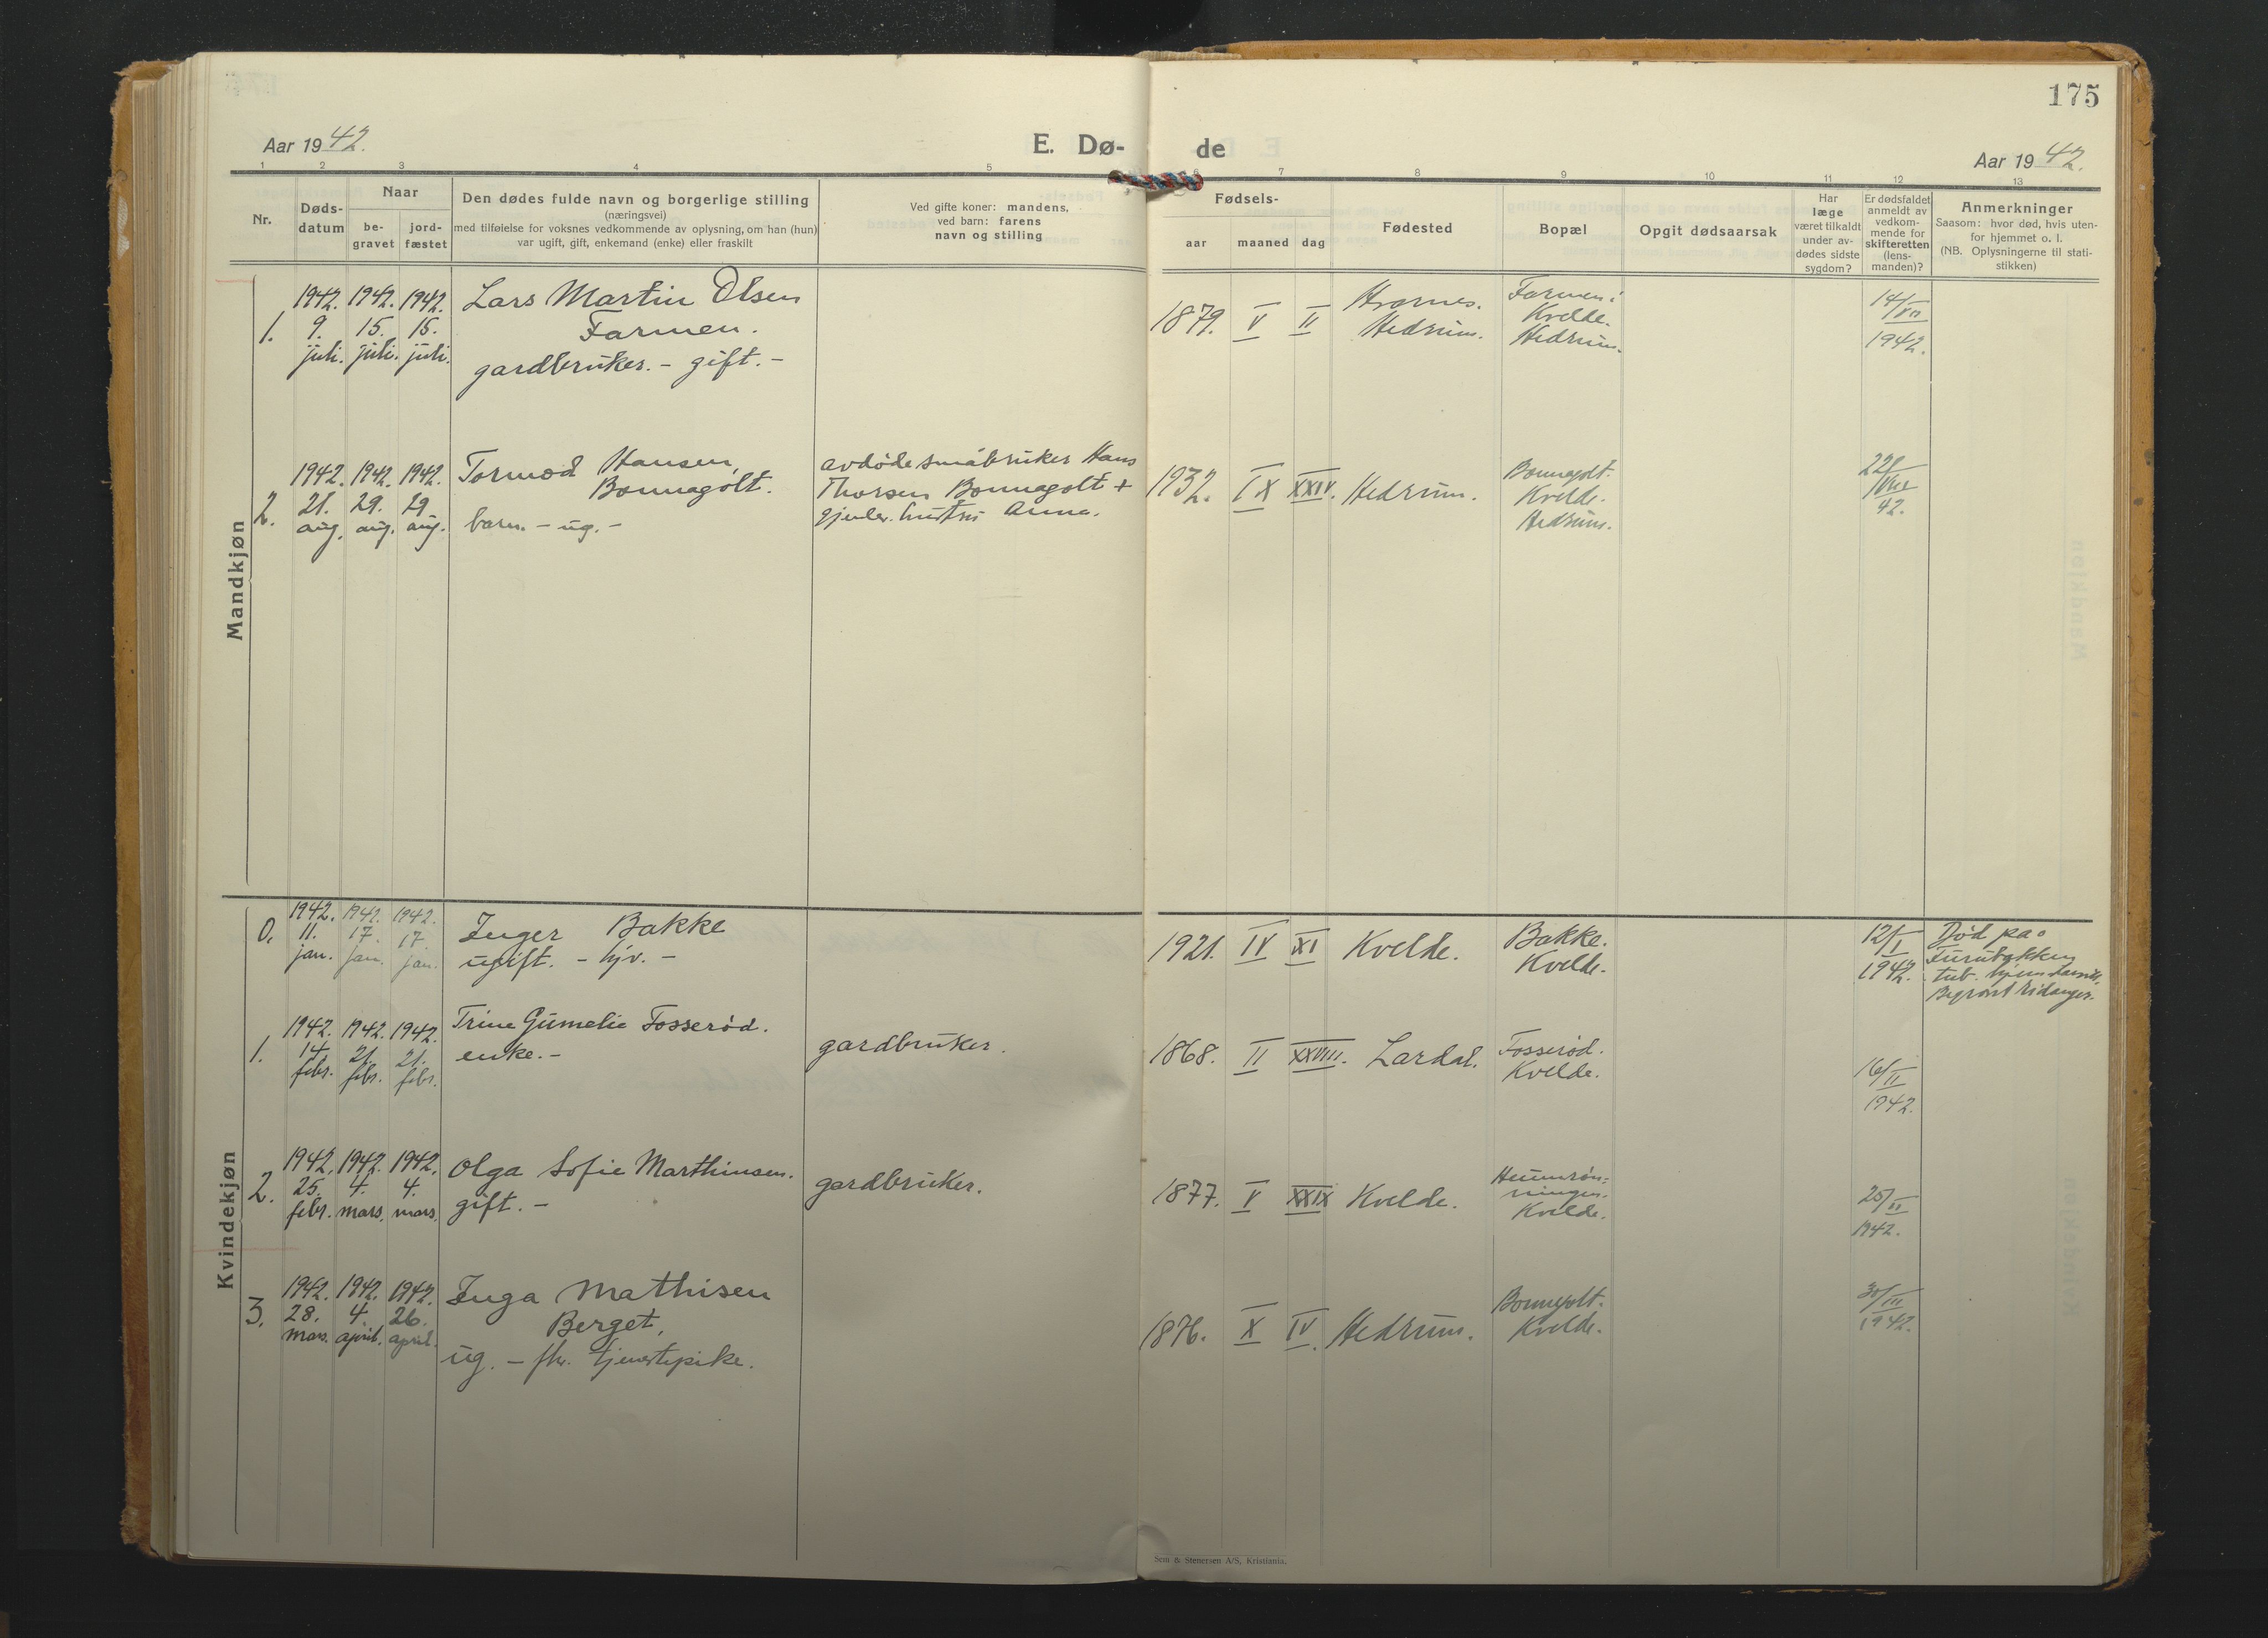 175
Aar 1942.
E. Dø-
de
Aar 1942.
1
2
3
4
5
6
7
8
9
10
11
12
13
Nr.
Døds-
datum
Naar
be-
gravet
jord-
fæstet
Den dødes fulde navn og borgerlige stilling
(næringsvei)
med tilføielse for voksnes vedkommende av oplysning, om han (hun)
var ugift, gift, enkemand (enke) eller fraskilt
Ved gifte koner: mandens,
ved barn: farens
navn og stilling
Fødsels-
aar
maaned
dag
Fødested
Bopæl
Opgit dødsaarsak
Har
læge
været tilkaldt
under av-
dødes sidste
sygdom?
Er dødsfaldet
anmeldt av
vedkom-
mende for
skifteretten
(lens-
manden)?
Anmerkninger
Saasom: hvor død, hvis uten-
for hjemmet o. l.
(NB. Oplysningerne til stati-
stikken)
Mandkjøn
1.
1942.
9.
juli.
1942.
15.
juli.
1942.
15.
juli.
Lars Martin Olsen
Farmen.
gardbruker. - gift. -
1879.
V
II
Hvarnes.
Hedrum.
Farmen i
Kvelde.
Hedrum.
14/VII
1942.
2.
1942.
21.
aug.
1942.
29.
aug.
1942.
29.
aug.
Tormod Hansen,
Bonnagolt.
barn. - ug. -
avdøde småbruker Hans
Thorsen Bonnagolt +
gjenlev. hustru Anna.
1932.
IX
XXIV.
Hedrum.
Bonnegolt.
Kvelde.
Hedrum.
22/VIII
42.
Kvindekjøn
0.
1942.
11.
jan.
1942.
17.
jan.
1942.
17.
jan.
Inger Bakke
ugift. - hjv. -
1921.
IV
XI
Kvelde.
Bakke.
Kvelde.
12/I
1942.
Død på
Furubakken
tub. hjem
Begravet
1.
1942.
14.
febr.
1942.
21.
febr.
1942.
21.
febr.
Trine Gumelie Fosserød.
enke. -
gardbruker.
1868.
II
XXVIII.
Lardal.
Fosserød.
Kvelde.
16/II
1942.
2.
1942.
25.
febr.
1942.
4.
mars.
1942.
4.
mars.
Olga Sofie Marthinsen.
gift. -
gardbruker.
1877.
V
XXIX
Kvelde.
ningen.
Kvelde.
25/II
1942.
3.
1942.
28.
mars.
1942.
4.
april.
1942.
26.
april.
Inga Mathisen
Berget,
ug. - fhv. tjenestepike.
1876.
X
IV.
Hedrum.
Bonnegolt.
Kvelde.
30/III
1942.
Sem & Stenersen A/S, Kristiania.